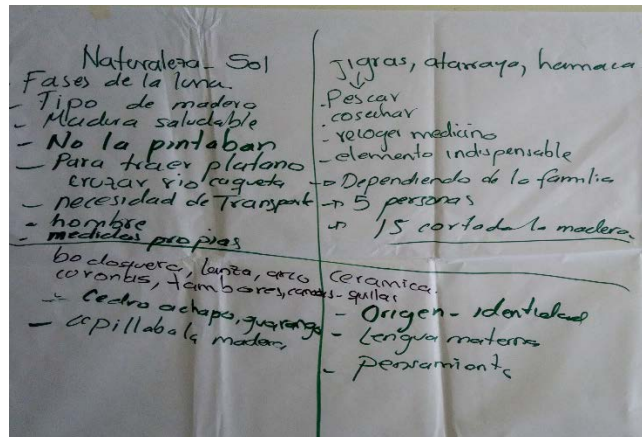 Naturaleza - Sol
- Fases de la luna.
- Tipo de madera
- Madura saludable
- No la pintaban
- Para traer platano
cruzar rio caqueta
- necesidad de Transport
- hombre
- medidas propias
Jigras, atarraya, hamaca
- Pescar
cosechar
- recoger medicina
- elemento indispensable
→ Dependiendo de la familia
→ 5 personas
→ 15 cortada la madera
bodoquera, lanza, arco ceramica.
coronas, tambores, canoas -
- Cedro achapo, guarango
- apillaba la madera
- Origen - identidad
- Lengua materna
- pensamiento